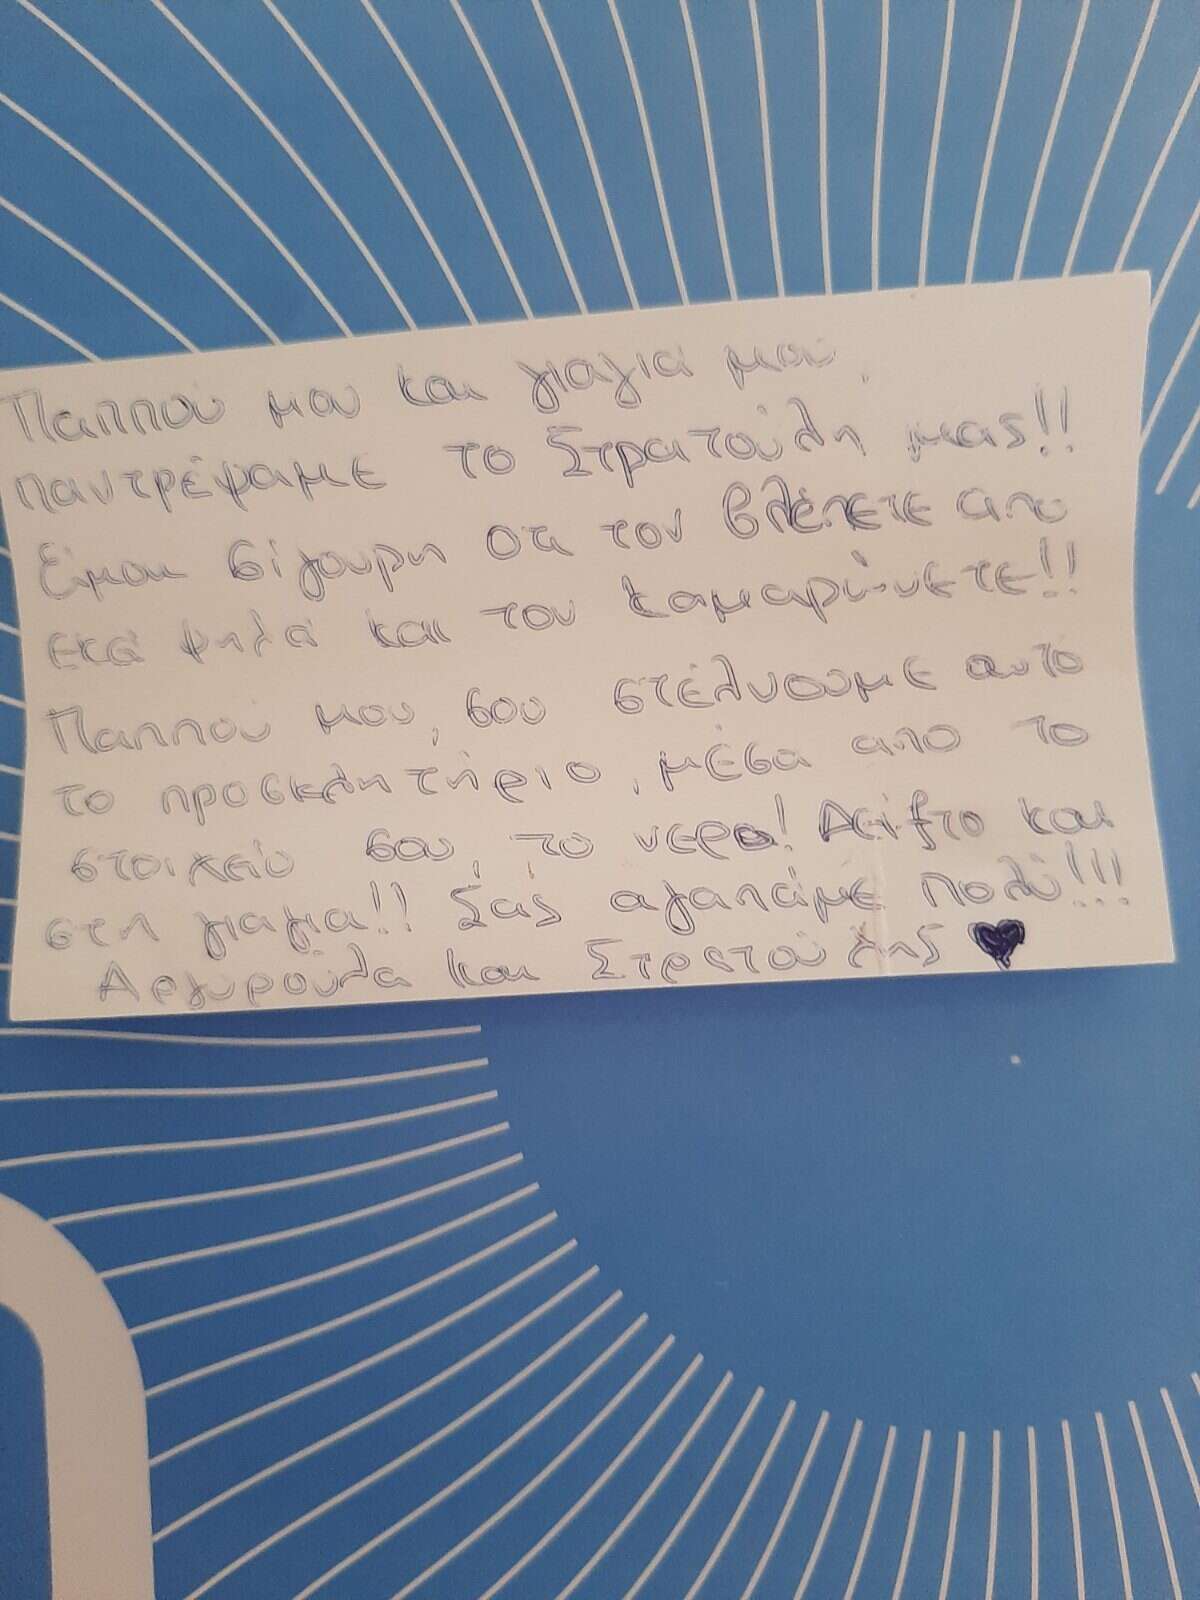 Παππού μου και γιαγιά μου,
παντρέψαμε το Στρατούλη μας!!
Είμαι σίγουρη οτι τον βλέπετε απο
εκεί ψηλά και τον καμαρώνετε!!
Παππού μου, σου στέλνουμε αυτό
το προσκλητήριο, μέσα απο το
στοιχείο σου, το νερο! Δείξτο και
στη γιαγια!! Σας αγαπάμε πολύ!!!
Αργυρούλα και Στρατούλης ♥